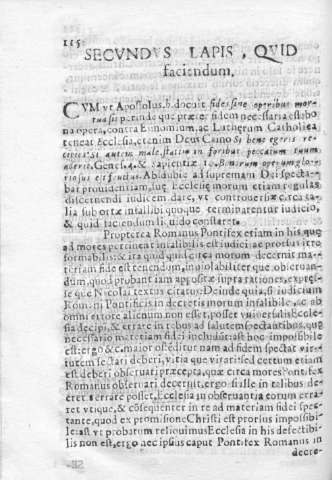 115.
SECVNDVS LAPIS, QVID
faciendum.
CVM vt Apostolus. b. docuit fides sine operibus mor-
tua sit perinde quę præter fidem necessaria est bo
na opera, contra Eunomium, ac Lutherum Catholica
teneat Ecclesia, etenim Deus Caino Si bene egeris re-
cipies, si autem male, statim in foribus peccatum tuum
aderit. Genes. 4. & sapientiæ 10. Bonorum operum glo-
riosus est fructus. Ab
bat prouidentiam, suę Ecclesię morum etiam regulas
discernendi iudicem dare, vt controuersiæ, circa ta-
lia sub ortæ infallibi quoque terminarentur iudicio,
& quid faciendum liquido constaret.
Propterea Romanus Pontifex etiam in his quę
ad mores pertinent infalibilis est iudici ac prorsus irre
formabilis: & ita quid quid circa morum decernit ma-
teriam fide est tenendum, inuiolabiliter quę obseruan-
dum, quod probat iam apposita supra rationes, expres-
se que Nicolai textus citatus; Deinde quia, si iudicium
Romani Pontificis in decretis morum infalibile, ac ab
omni errore alienum non esset, posset vniuersalis Eccle-
sia decipi, & errare in rebus ad salutem spectantibus, quę
necessario materiam fidei includit: ast hoc impossibile
est: ergo & c. maior ostéditur nam ad fidem spectat vir-
tutem sectari deberi, vitia que vitari sed certum etiam
est deberi obseruari pręcepta, quæ circa mores Pontifex
Romanus obseruari decernit, ergo si ille in talibus de-
cret s errare posset, Ecclesia in obseruantia eorum erra-
ret vtique, & cósequenter in re ad materiam fidei spec-
tante, quod ex promisione Christi est prorsus impossibi-
le: ast vt probatum reliquimus Ecclesia in his defectibi-
lis non est, ergo nec ipsius caput Pontifex Romanus in
decre-